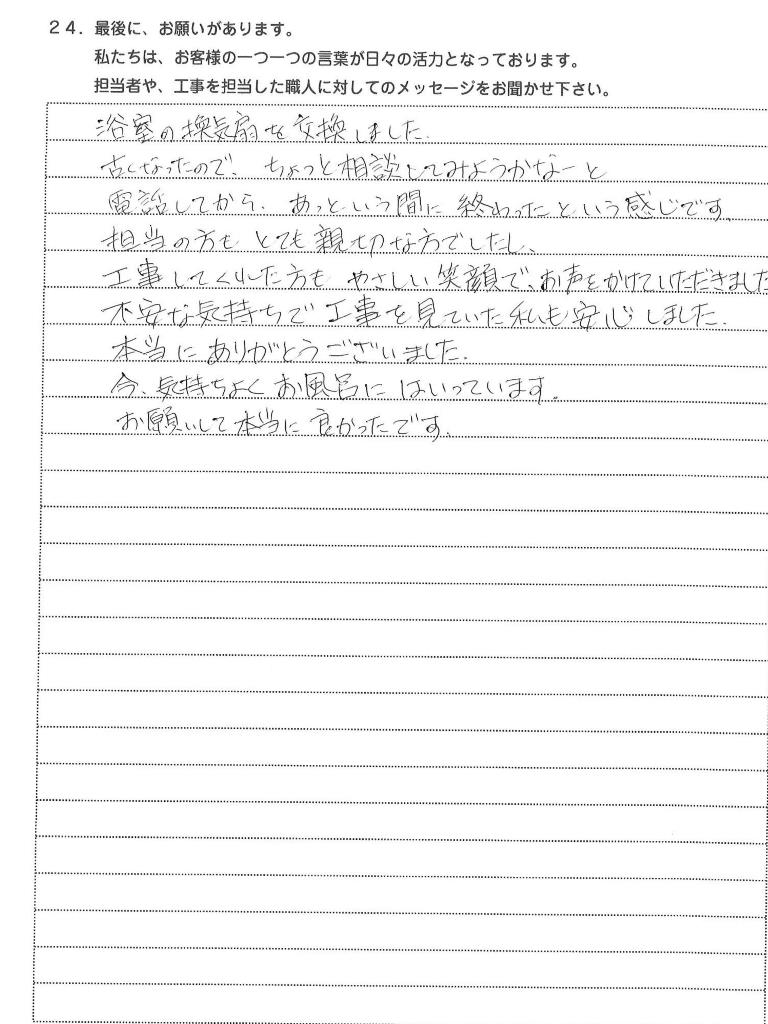 24. 最後に、お願いがあります。
私たちは、お客様の一つ一つの言葉が日々の活力となっております。
担当者や、工事を担当した職人に対してのメッセージをお聞かせ下さい。
浴室の換気扇を交換しました.
古くなったので、ちょっと相談してみようかなーと
電話してから、あっという間に終わったという感じです。
担当の方もとても親切な方でしたし、
工事してくれた方もやさしい笑顔で、お声をかけていただきました
不安な気持ちで工事を見ていた私も安心しました.
本当にありがとうございました.
今、気持ちよくお風呂にはいっています。
お願いして本当に良かったです.